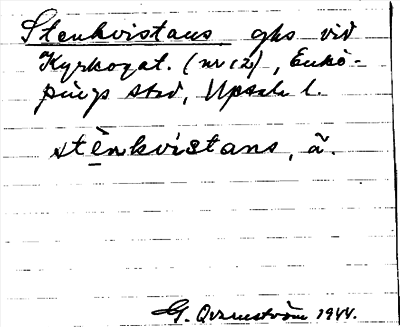 Stenkvistans ghs vid
Kyrkogat. (nr 12), Enkö-
pings stad, Upsala l.
stènkvistans, ã.
G. Qvarnström 1944.